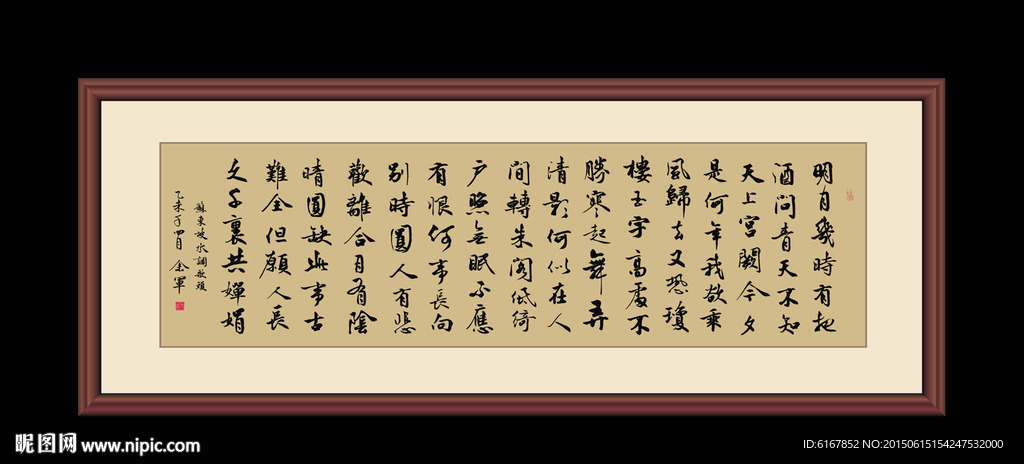 明月幾時有把
酒問青天不知
天上宮闕今夕
是何年我欲乘
風歸去又恐瓊
樓玉宇高處不
勝寒起舞弄
清影何似在人
間轉朱閣低綺
户照無眠不應
有恨何事長向
别時圓人有悲
歡離合月有陰
晴圓缺此事古
難全但願人長
久千裏共嬋娟
蘇東坡水調歌頭
乙未年四月余軍
昵图网 www.nipic.com
ID:6167852 NO:20150615154247532000